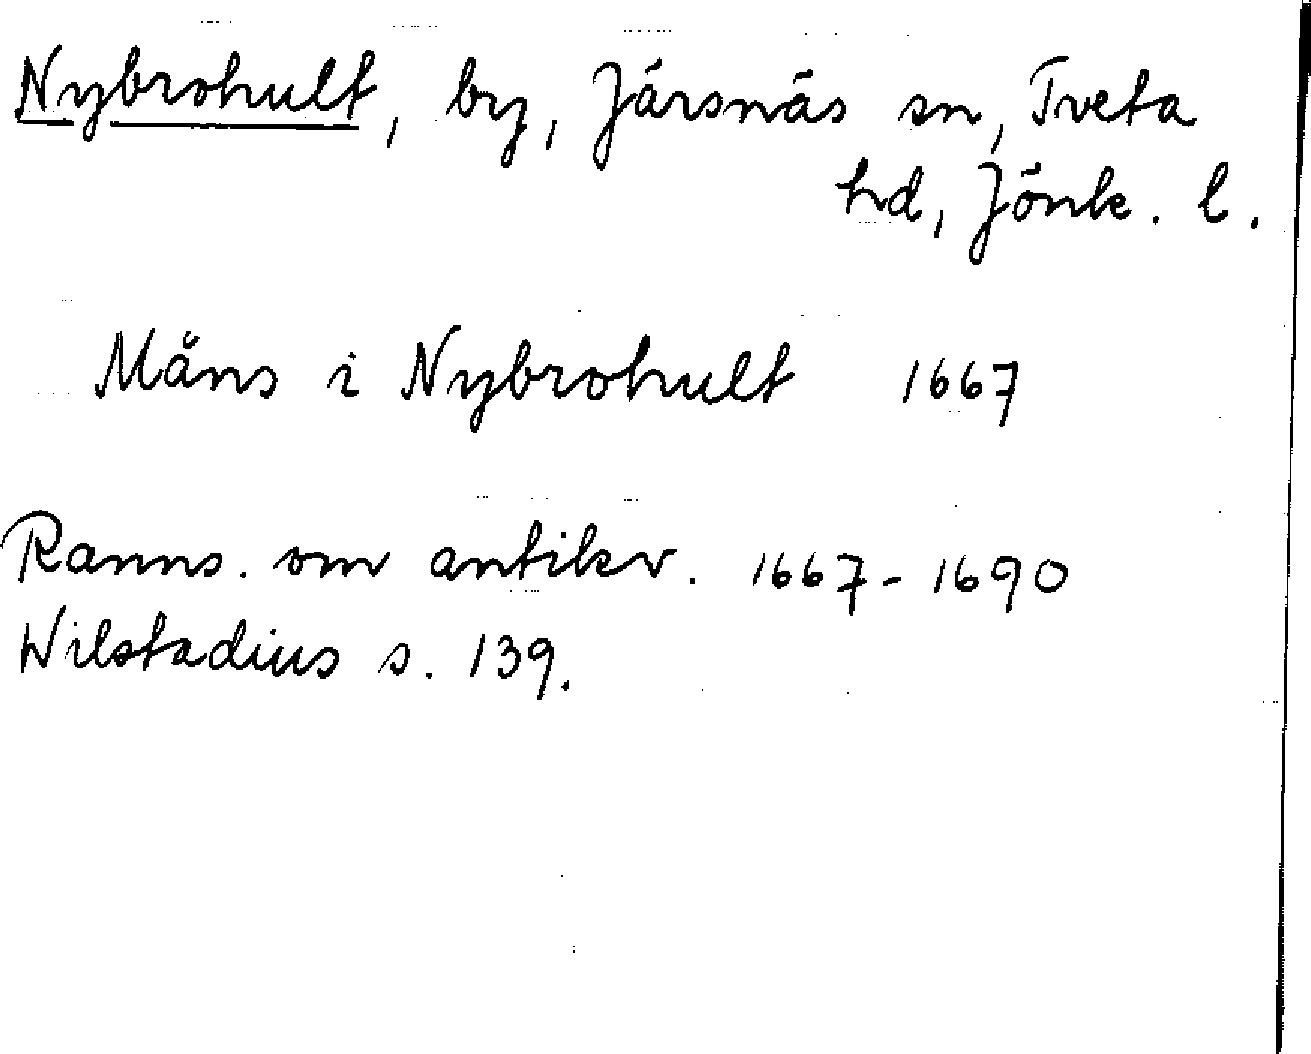 Nybrohult, by, Järsnäs sn, Tveta
hd, Jönk. l.
Måns i Nybrohult 1667
Ranns. om antikv. 1667-1690
Wilstadius s. 139.